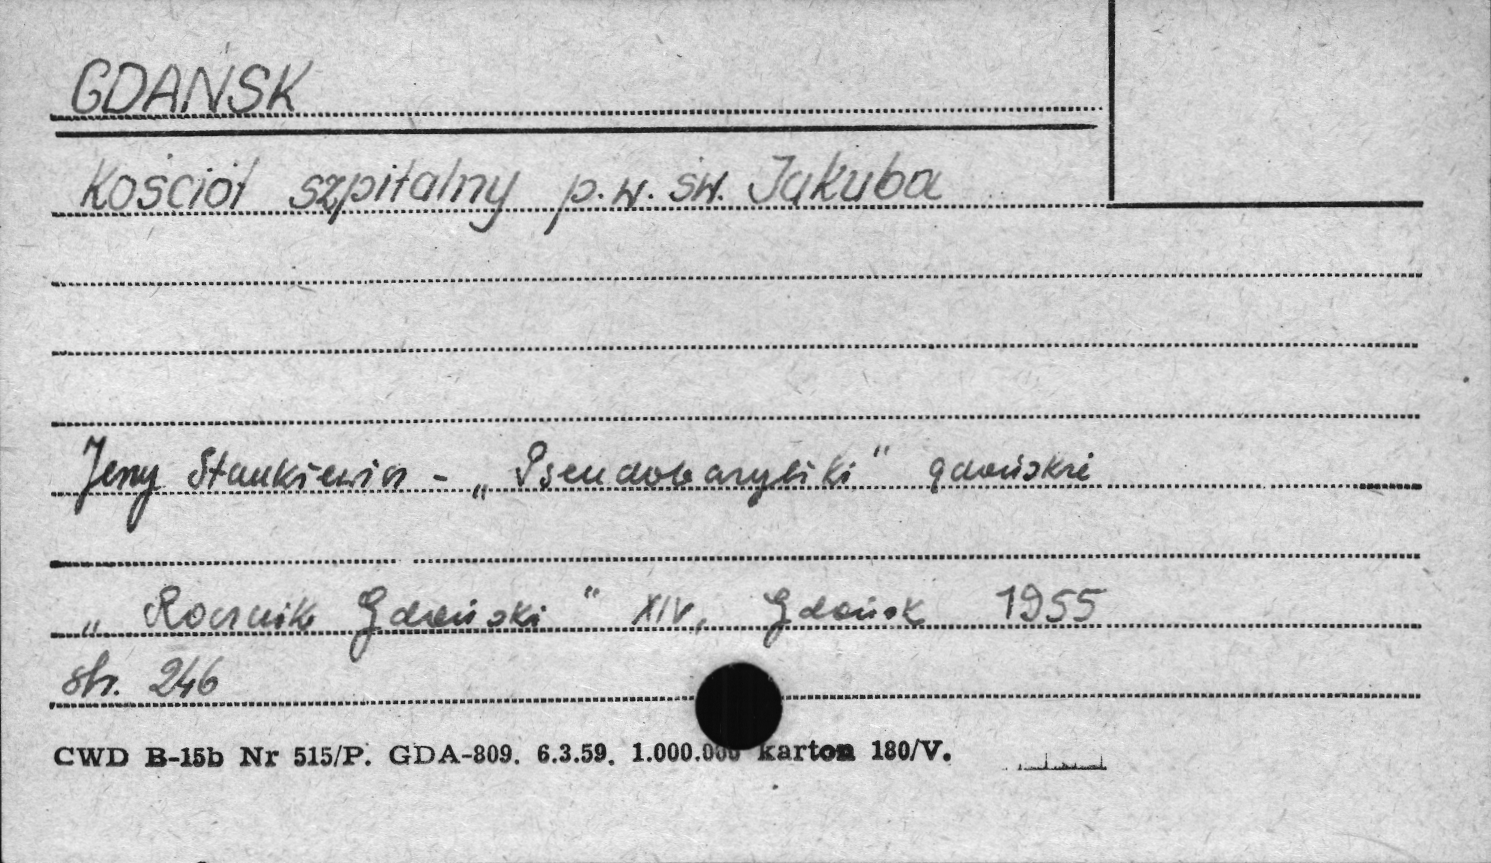 GDAŃSK
Kościół szpitalny p.w. św. Jakuba
Jerzy Stankiewicz - „Pseudobazyliki" gdańskie
„Rocznik Gdański" XIV, Gdańsk 1955
str. 246
CWD B-15b Nr 515/P. GDA-809. 6.3.59. 1.000.000 karton 180/V.